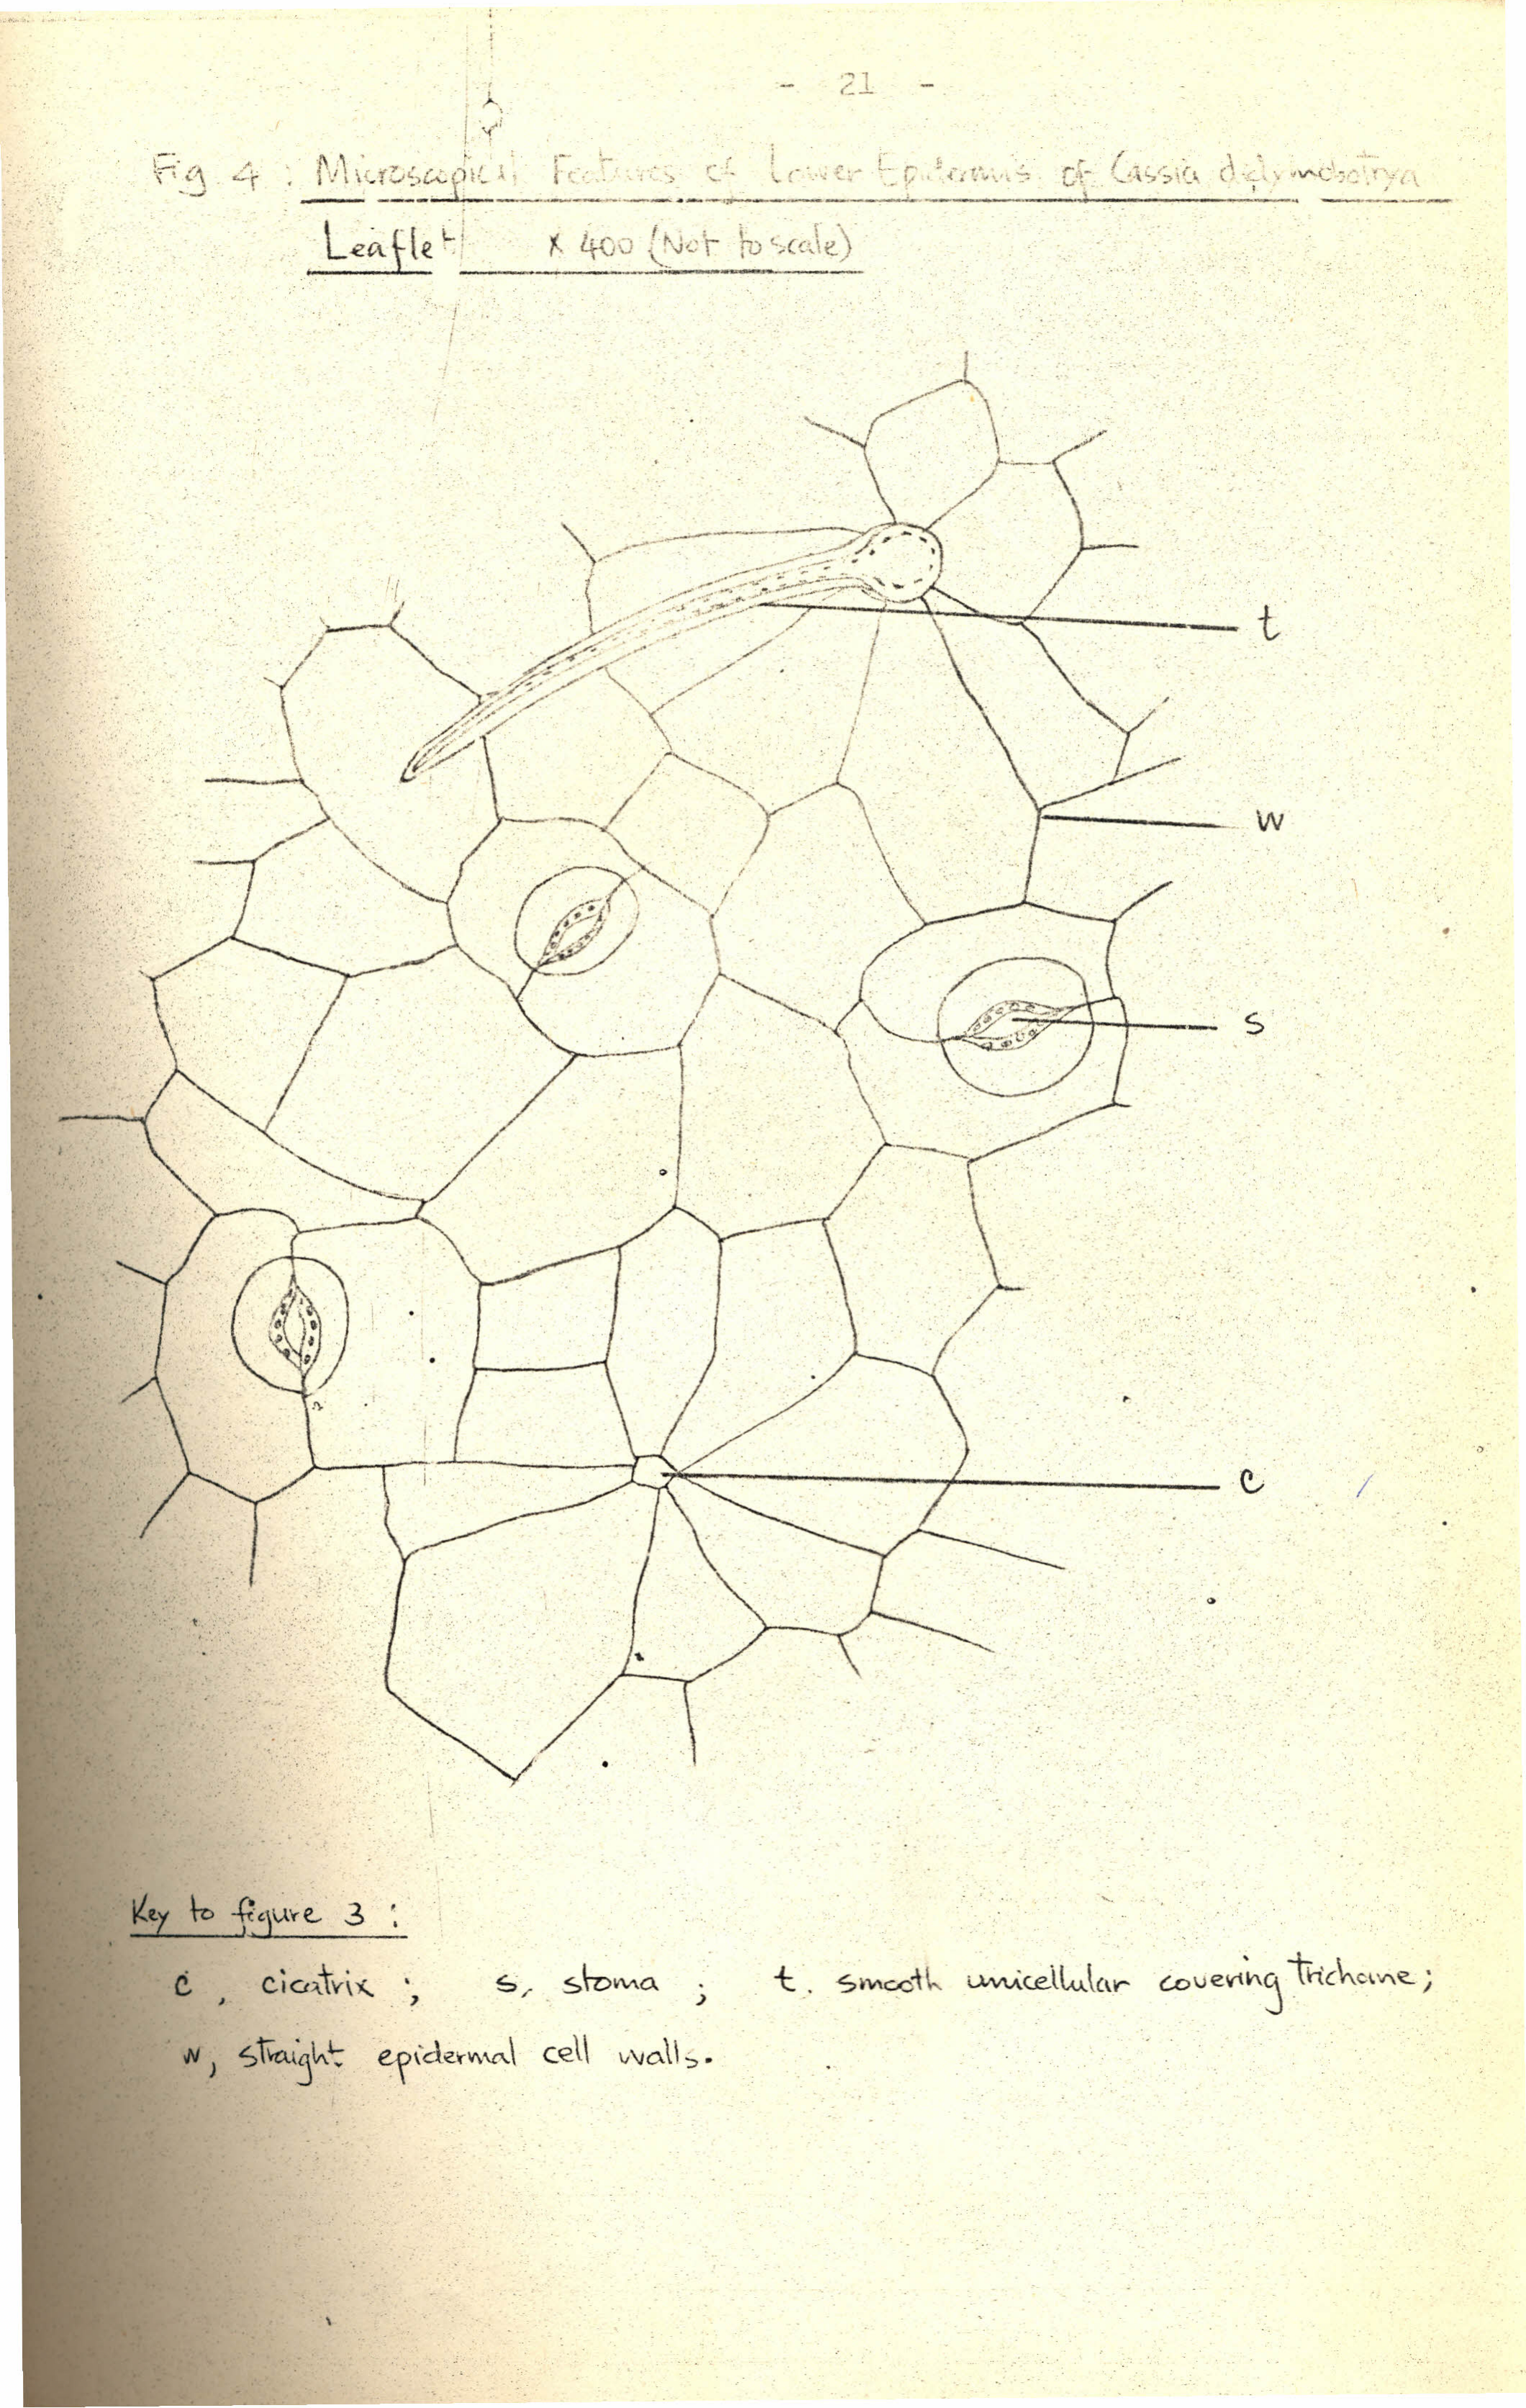 - 21 -
Fig 4 : Microscopical Features of Lower Epidermis of Cassia didymobotrya
Leaflet x 400 (Not to scale)
t
w
s
c
Key to figure 3 :
c, cicatrix ; s, stoma ; t. smooth unicellular covering trichome;
w, straight epidermal cell walls.